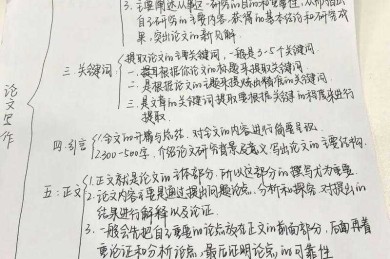 3. 主要阐述从事这一研究的目的和重要性,从而指出
自己研究的主要内容,获得的基本结论和研究成
果,突出论文的新见解
论文写作
三. 关键词
提取论文的主要关键词,一般是3-5个关键词
一. 最好根据你论文的标题来提取关键词
二. 是根据论文的主题来提炼出精准的关键词
三. 是文章的关键词提取要根据关键的程度来进行
提取.
四. 引言
1. 全文的开篇与总结. 对全文内容进行简要呈现
2. 300-500字. 介绍论文研究背景及意义 写出论文的主要结构.
五. 正文
1. 正文就是论文的主体部分. 所以这部分的撰写尤为重要
2. 论文内容主要是通过提出问题论点. 分析和探索. 对提出的
结果进行解释以及论证.
3. 一般会先把自己重要的论点放在正文的前面部分. 后面再着
重论证和分析论点. 最后证明论点的可靠性